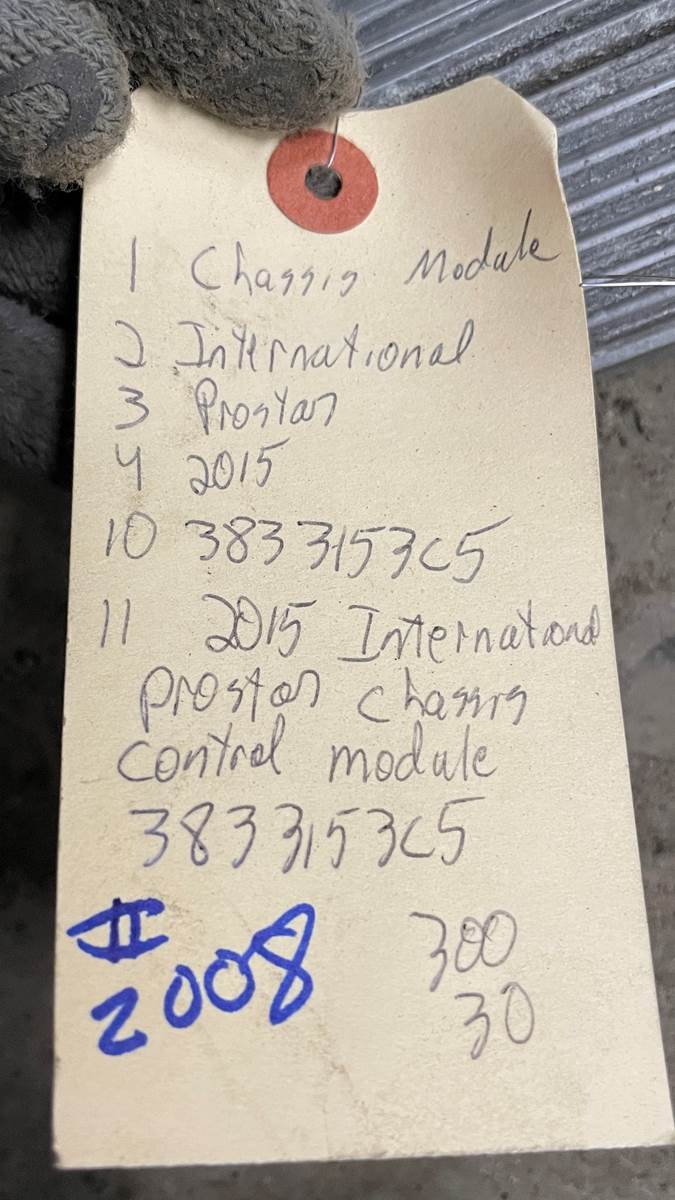 1 Chassis Module
2 International
3 Prostar
4 2015
10 3833153C5
11 2015 International
Prostar chassis
control module
3833153C5
#
2008
300
30